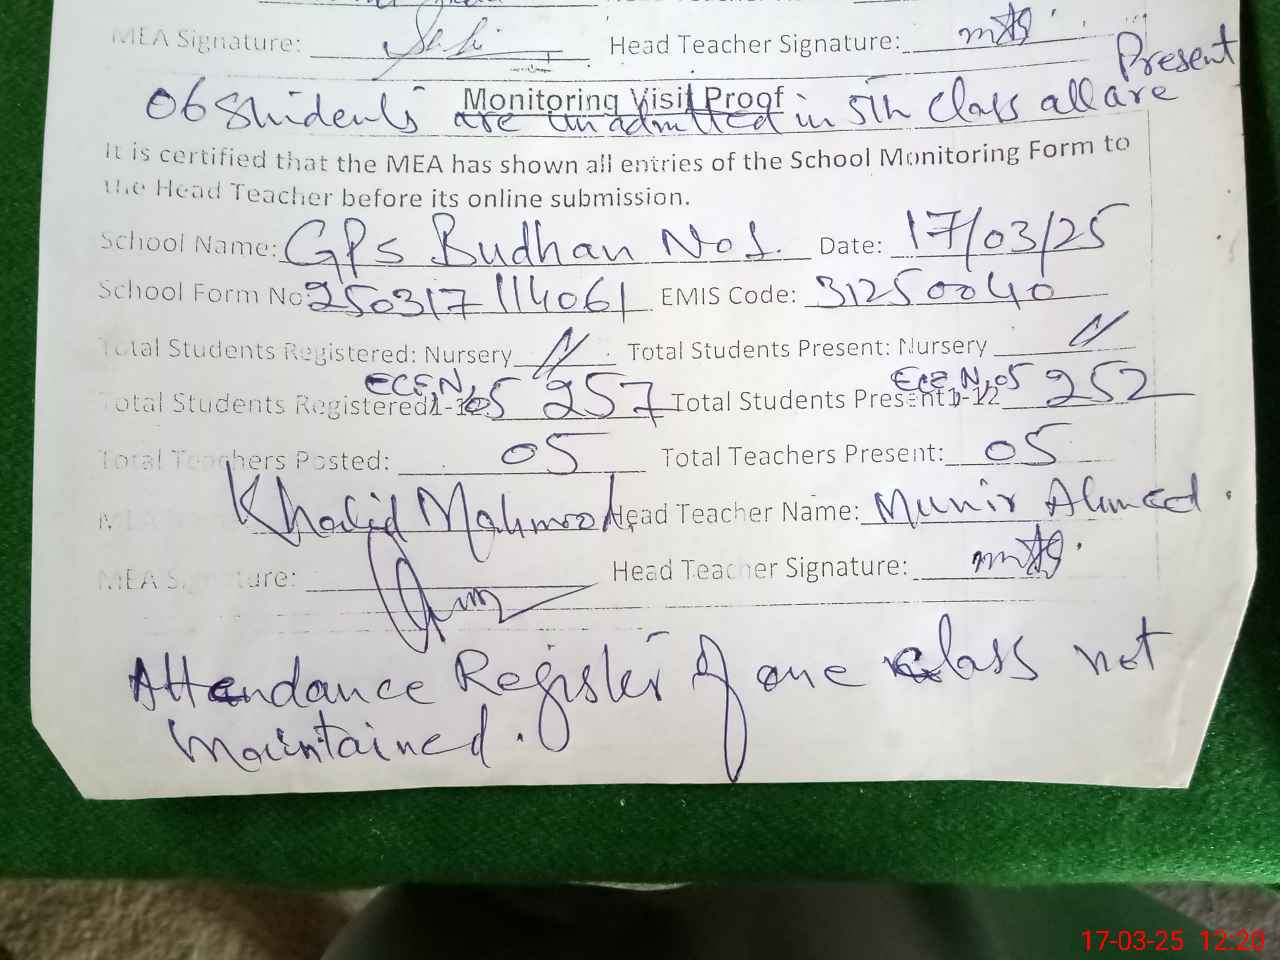 MEA Signature: Head Teacher Signature:
Present
Monitoring Visit Proof
06 Students are un admitted in 5th Class all are
It is certified that the MEA has shown all entries of the School Monitoring Form to
the Head Teacher before its online submission.
School Name: GPS Budhan No 1. Date: 17/03/25
School Form No: 250317114061 EMIS Code: 31250040
Total Students Registered: Nursery Total Students Present: Nursery
ECE, N, 05 Ece, N, 05
Total Students Registered 257 Total Students Present 1-12 252
Total Teachers Posted: 05 Total Teachers Present: 05
Khalid Mahmood Head Teacher Name: Munir Ahmed.
MEA Signature: Head Teacher Signature:
Attendance Register of one class not
maintained.
17-03-25 12:20